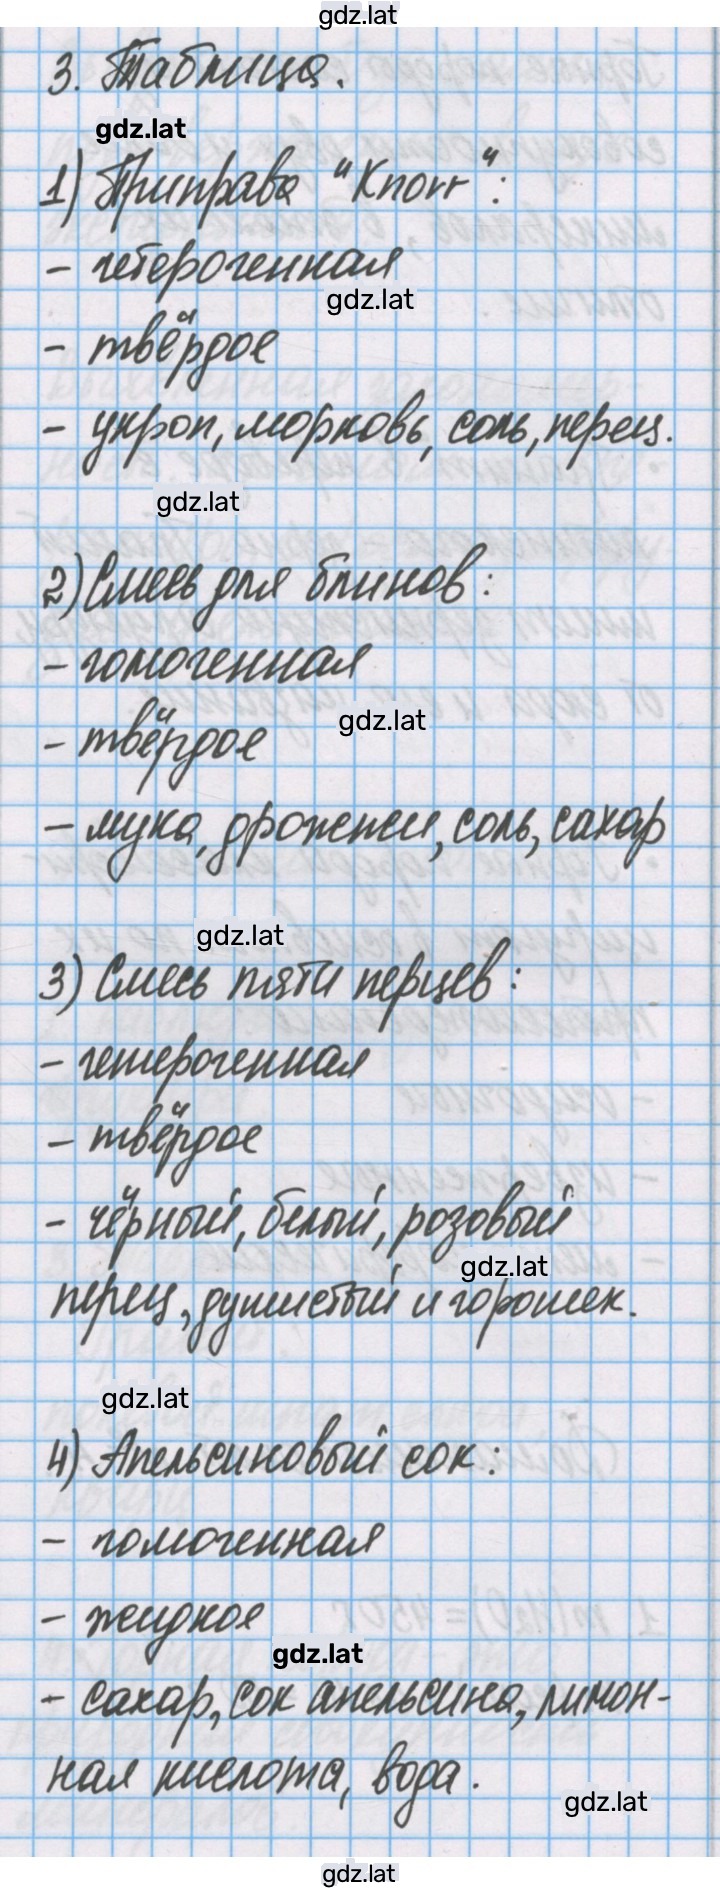 gdz.lat
3. Таблица.
gdz.lat
1) Приправа "Knorr":
- гетерогенная
gdz.lat
- твёрдое
- укроп, морковь, соль, перец.
gdz.lat
2) Смесь для блинов:
- гомогенная
gdz.lat
- твёрдое
- мука, дрожжи, соль, сахар
gdz.lat
3) Смесь пяти перцев:
- гетерогенная
- твёрдое
- чёрный, белый, розовый
gdz.lat
перец, душистый и горошек.
gdz.lat
4) Апельсиновый сок:
- гомогенная
- жидкое
gdz.lat
- сахар, сок апельсина, лимон-
ная кислота, вода.
gdz.lat
gdz.lat